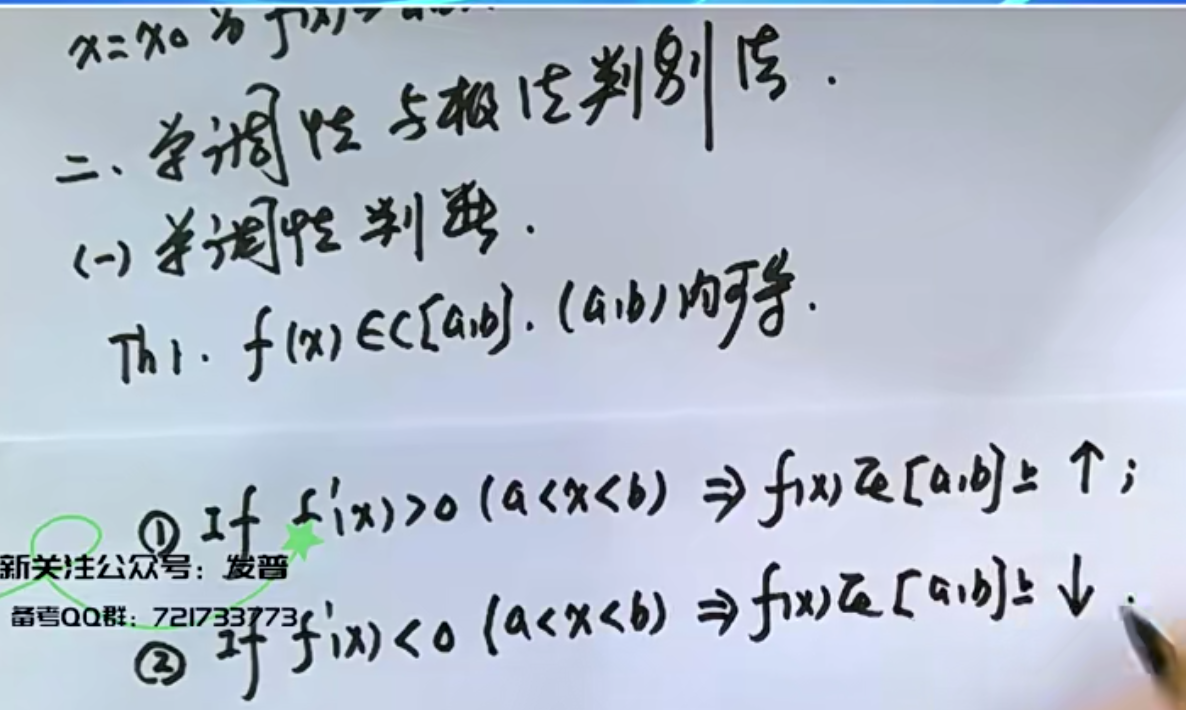 x=x₀ 为 f(x)
二、单调性与极值判别法.
(一) 单调性判断.
Th1. f(x)∈C[a,b]. (a,b)内可导.
① If f'(x)>0 (a<x<b) ⇒ f(x)在[a,b]上 ↑;
新关注公众号：发普
备考QQ群：721733773
② If f'(x)<0 (a<x<b) ⇒ f(x)在[a,b]上 ↓.